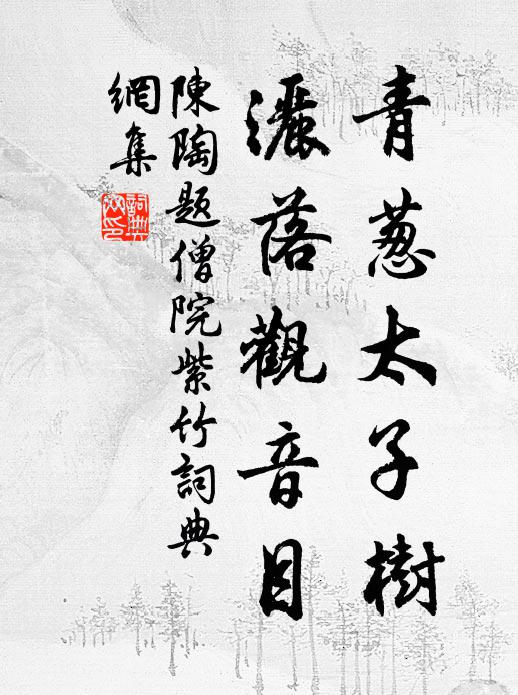 青葱太子樹
灑落觀音目
陳陶題僧院紫竹詞典
網集
詞典
网印